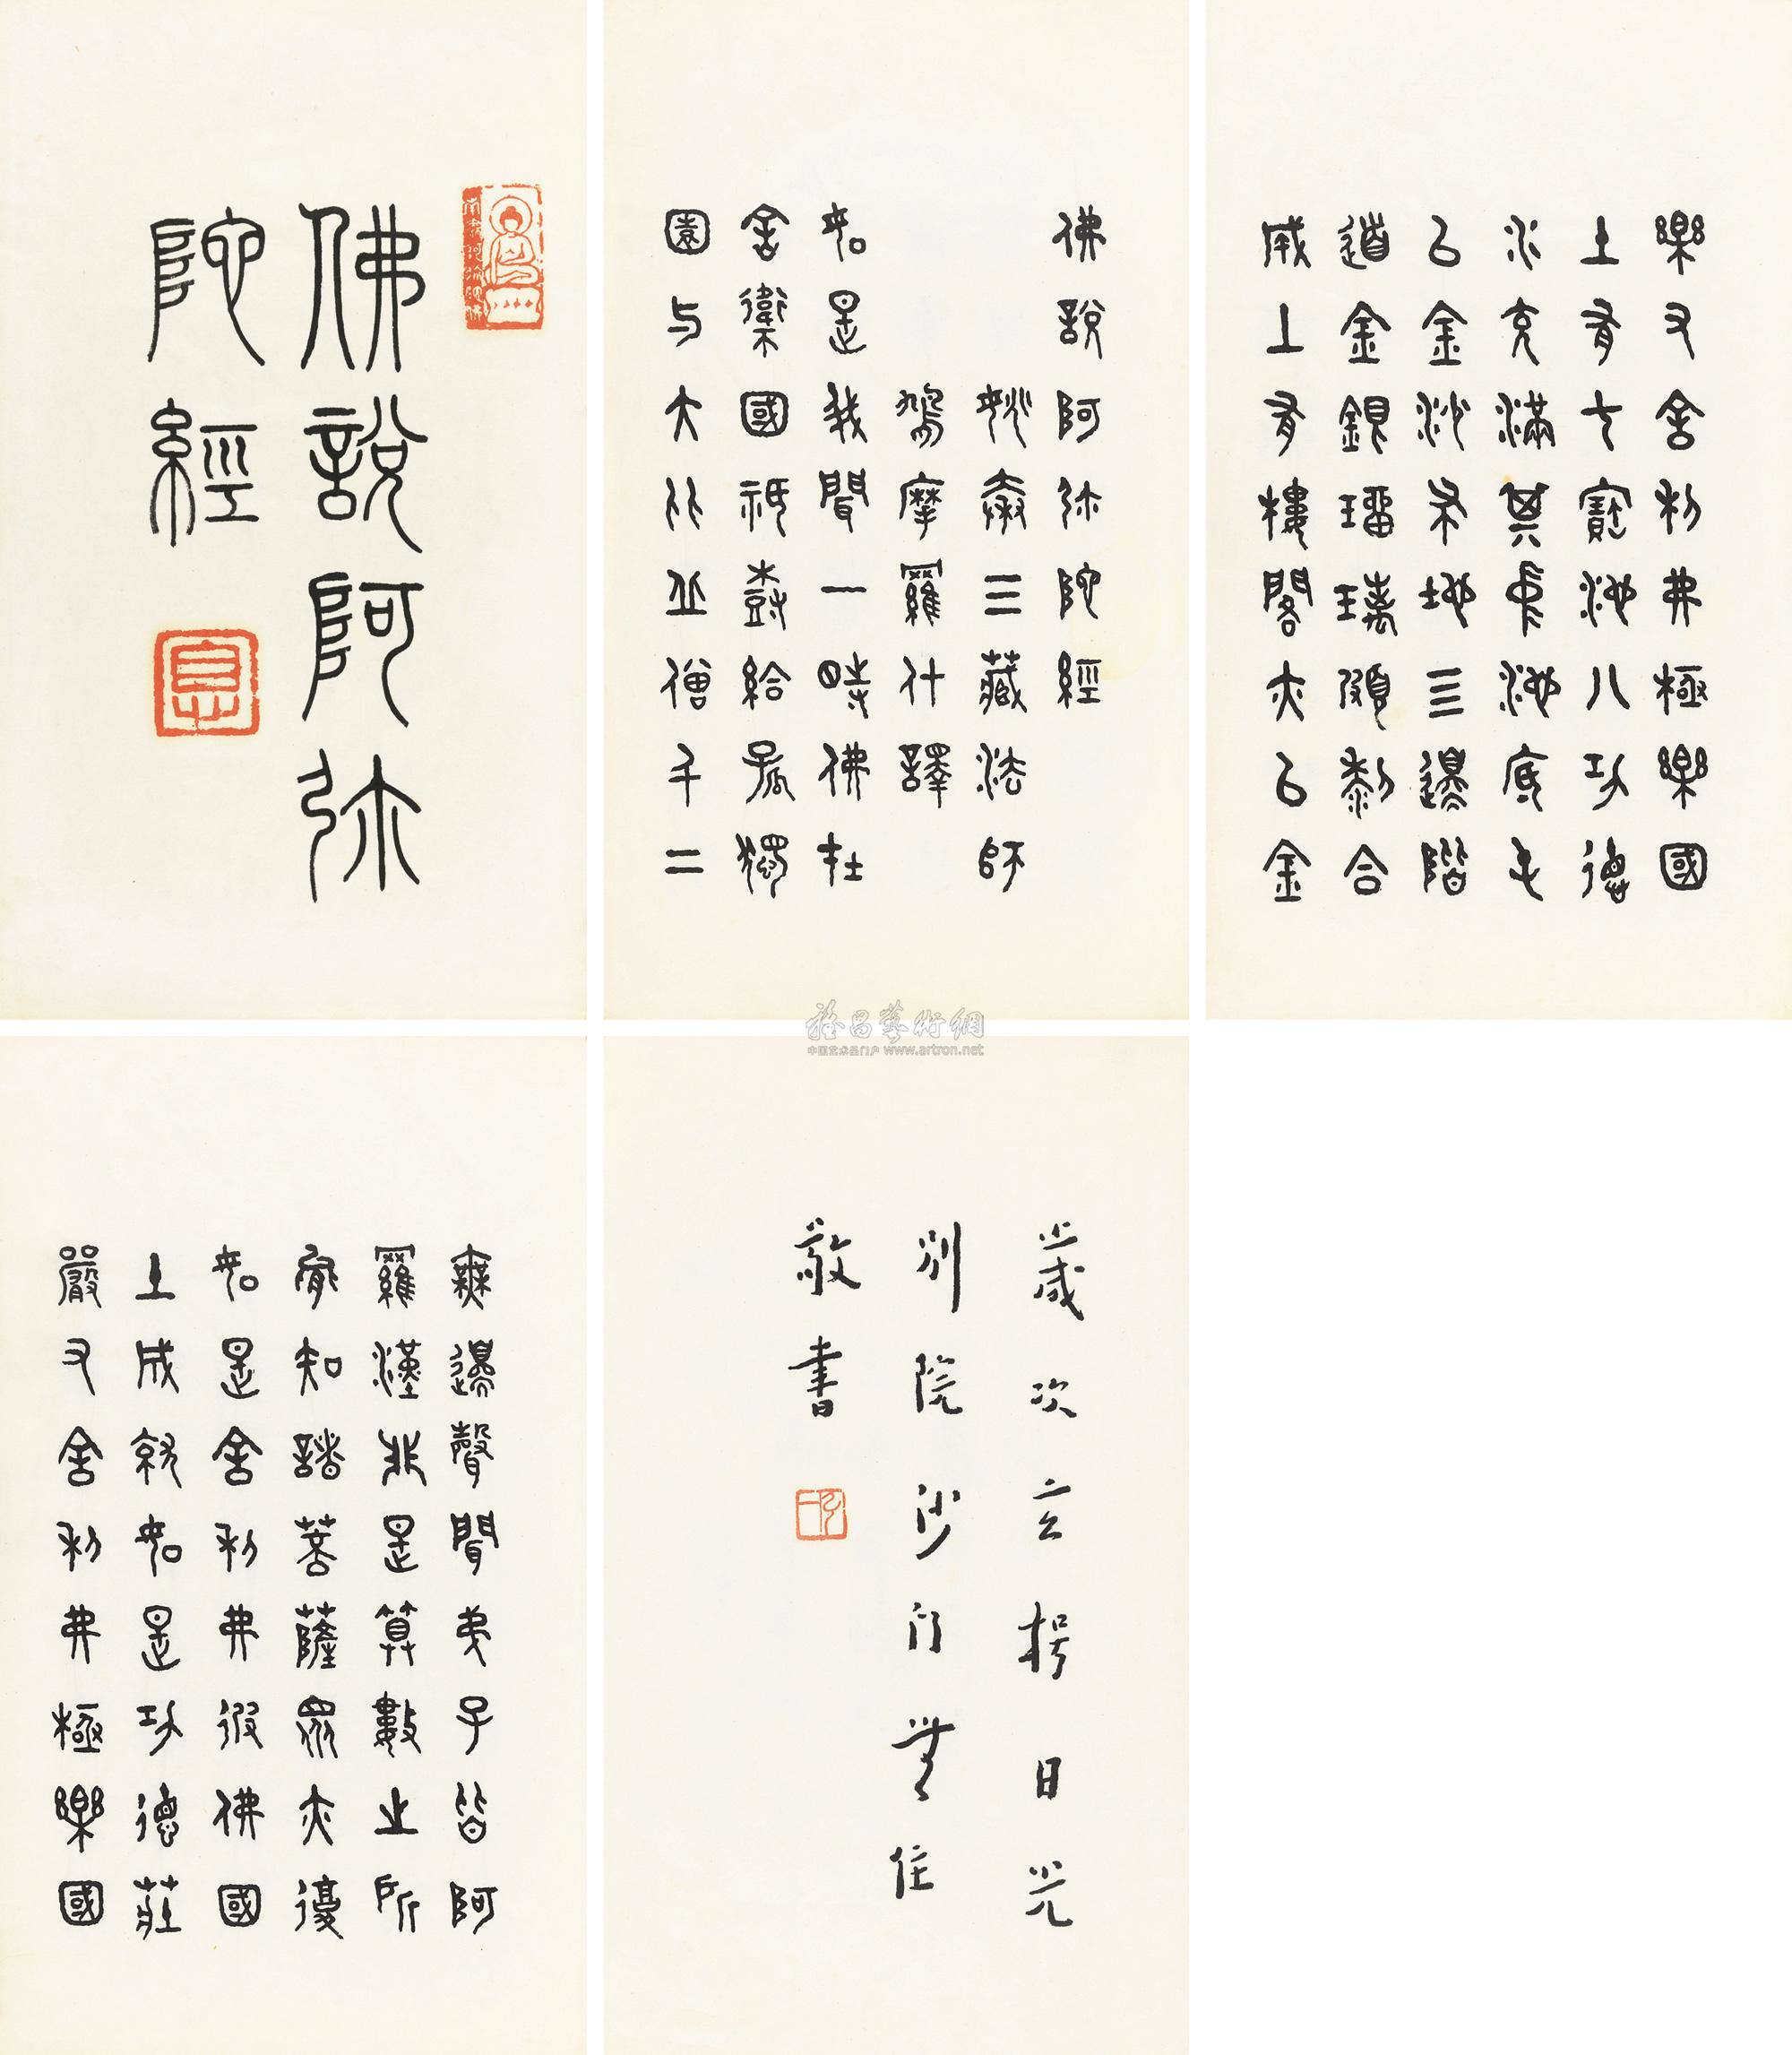 佛說阿弥
陀經
佛說阿弥陀經
姚秦三藏法師
鳩摩羅什譯
如是我聞一時佛在
舍衛國祇樹給孤獨
園与大比丘僧千二
樂又舍利弗極樂國
土有七寶池八功德
水充滿其中池底屯
㠯金沙布地三邊階
道金銀瑠璃頗黎合
成上有樓閣亦㠯金
無邊聲聞弟子皆阿
羅漢非是算數之所
能知諸菩薩眾亦復
如是舍利弗彼佛國
土成就如是功德莊
嚴又舍利弗極樂國
歲次玄枵日光
別院沙门无住
敬書
雅昌藝術網
中国艺术品门户 www.artron.net